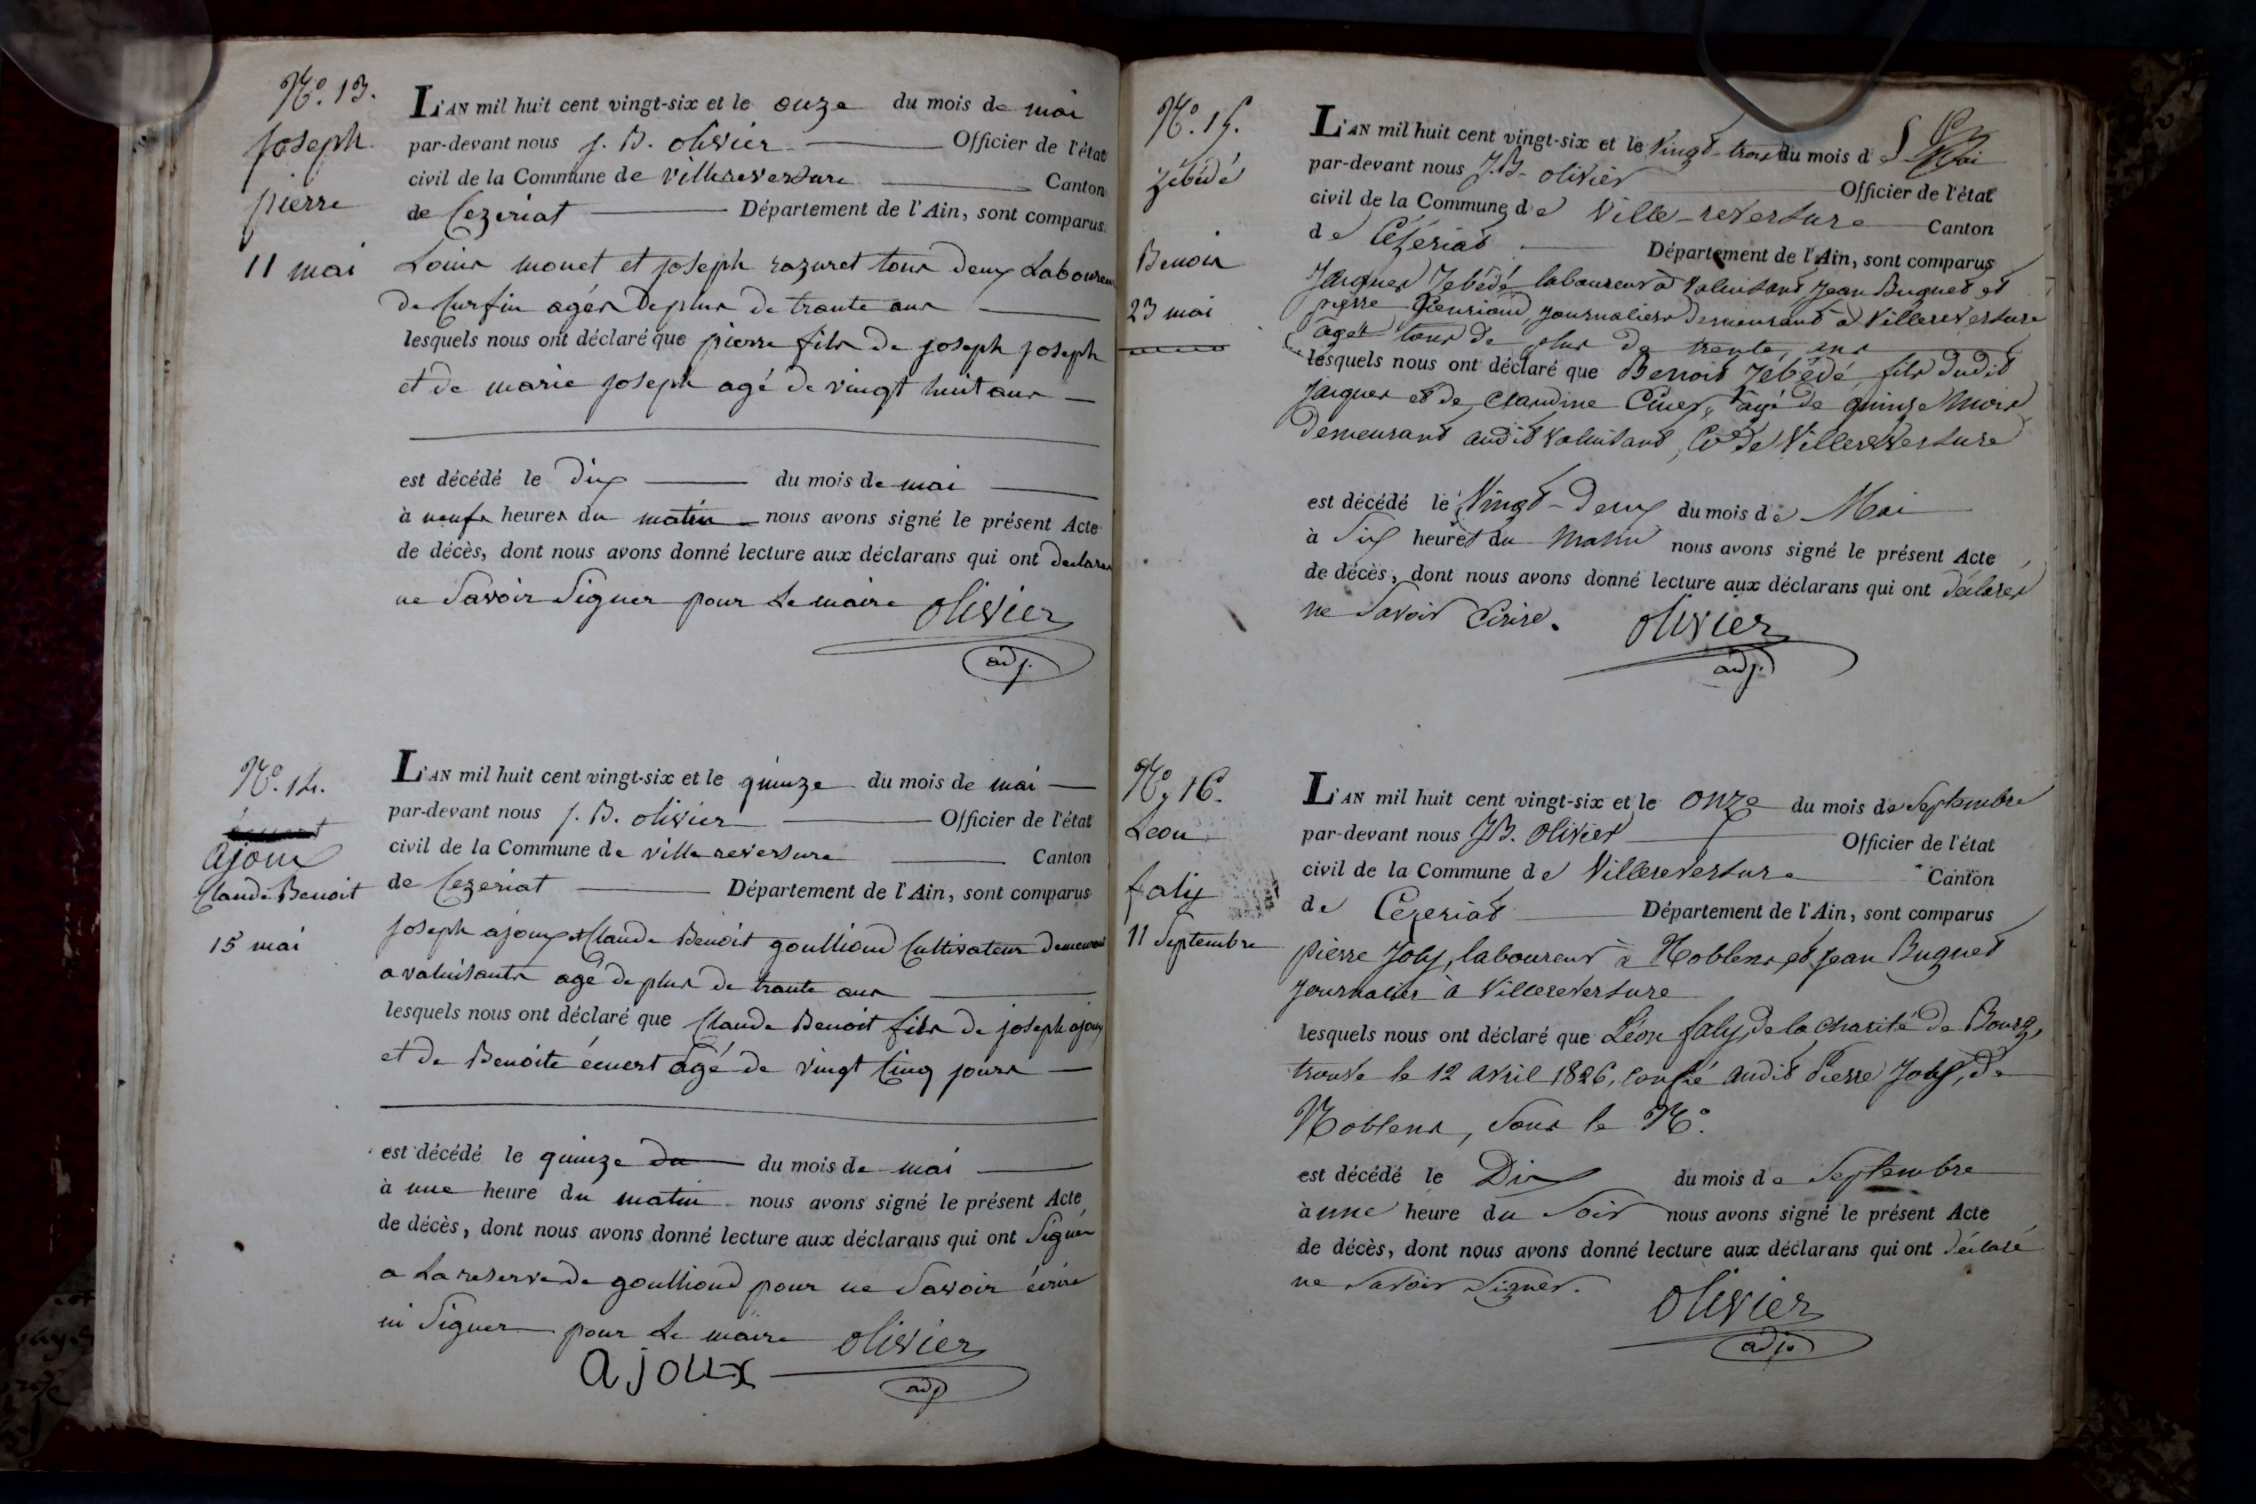 N.º 13.
joseph
pierre
11 mai
L'AN mil huit cent vingt-six et le onze du mois de mai
par-devant nous j. B. olivier Officier de l'état
civil de la Commune de villereversure Canton
de Cezeriat Département de l'Ain, sont comparus
Louis monet et joseph razuret tous deux Laboureur
de Curfin agés de plus de trante ans
lesquels nous ont déclaré que pierre fils de joseph joseph
et de marie joseph agé de vingt huit ans
est décédé le dix du mois de mai
à neufs heures du matin nous avons signé le présent Acte
de décès, dont nous avons donné lecture aux déclarans qui ont declarer
ne Savoir Signer pour Le maire olivier
adj.
N.º 14.
ajoux
Claude Benoit
15 mai
L'AN mil huit cent vingt-six et le quinze du mois de mai
par-devant nous j. B. olivier Officier de l'état
civil de la Commune de villereversure Canton
de Cezeriat Département de l'Ain, sont comparus
joseph ajoux et Claude Benoit goullioud Cultivateur demeurant
a valuisants agé de plus de trante ans
lesquels nous ont déclaré que Claude Benoit fils de joseph ajoux
et de Benoite écuert agé de vingt Cinq jours
est décédé le quinze du mois de mai
à une heure du matin nous avons signé le présent Acte
de décès, dont nous avons donné lecture aux déclarans qui ont Signer
a La reserve de goullioud pour ne Savoir écrire
ni Signer pour Le maire olivier
ajoux adj
N.º 15.
Zébédé
Benoit
23 mai
L'AN mil huit cent vingt-six et le Vingt-trois du mois de Mai
par-devant nous J.B. olivier Officier de l'état
civil de la Commune de Ville-reversure Canton
de Cézériat Département de l'Ain, sont comparus
Jacques Zébédé laboureur à Valuisant Jean Buguet et
pierre journaliers demeurant à Villereversure
agés tous de plus de trente ans
lesquels nous ont déclaré que Benoit Zébédé, fils dudit
Jacques et de Claudine agé de quinze Mois
demeurant audit Valuisant, Cne de Villereversure
est décédé le Vingt-deux du mois de Mai
à Six heures du Matin nous avons signé le présent Acte
de décès, dont nous avons donné lecture aux déclarans qui ont déclarés
ne Savoir Ecrire. olivier
adj.
N.º 16.
Leon
faly
11 Septembre
L'AN mil huit cent vingt-six et le onze du mois de Septembre
par-devant nous J.B. olivier Officier de l'état
civil de la Commune de Villereversure Canton
de Cezeriat Département de l'Ain, sont comparus
pierre Joly, laboureur à Noblens et Jean Buguet
journalier à Villereversure
lesquels nous ont déclaré que Léon faly, de la charité de Bourg,
trouvé le 12 avril 1826, confié audit Pierre Joly, de
Noblens, Sous le N.º
est décédé le Dix du mois de Septembre
à une heure du Soir nous avons signé le présent Acte
de décès, dont nous avons donné lecture aux déclarans qui ont déclaré
ne Savoir Signer. olivier
adj.